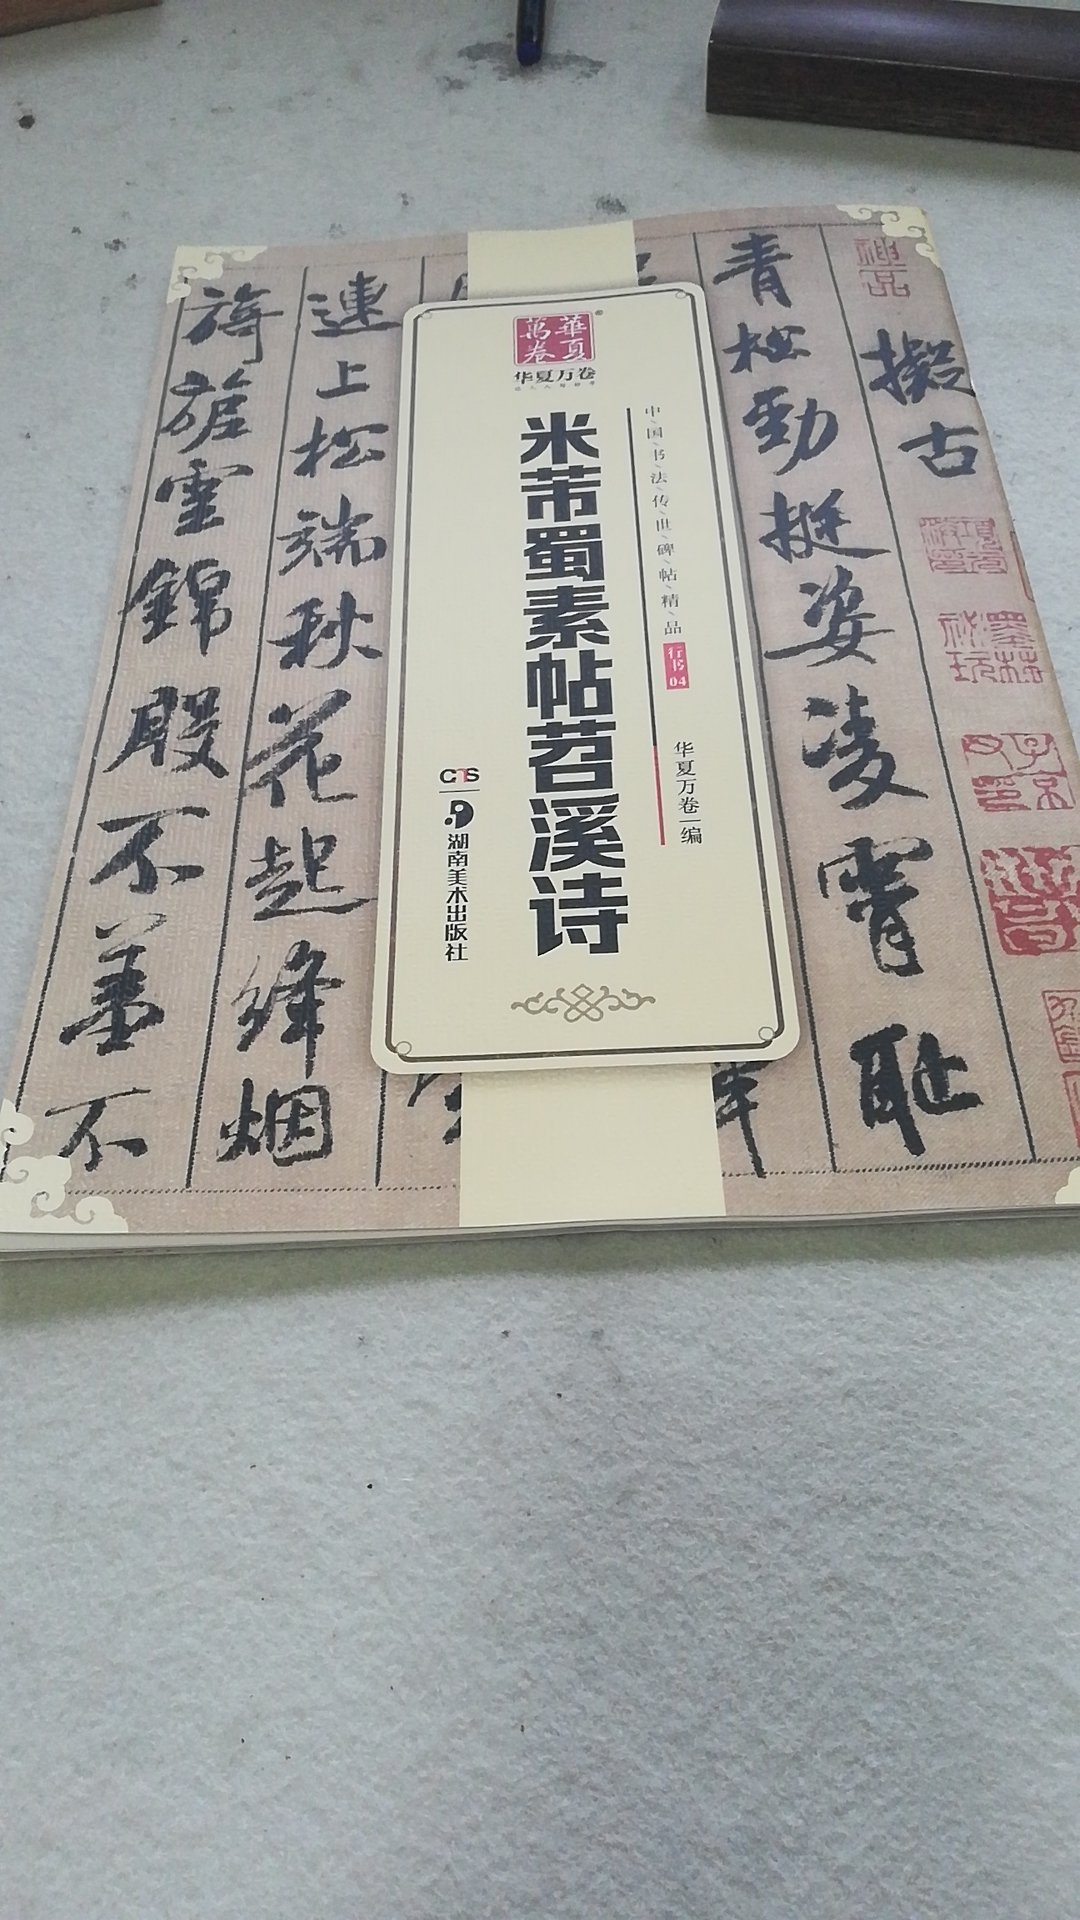 擬古
青松勁挺姿凌霄耻
中国书法传世碑帖精品
行书
04
华夏万卷 编
華夏萬卷
华夏万卷
米芾蜀素帖苕溪诗
CNS
湖南美术出版社
連上松端秋花起絳烟
旖旎雲錦殷不羞不
神品